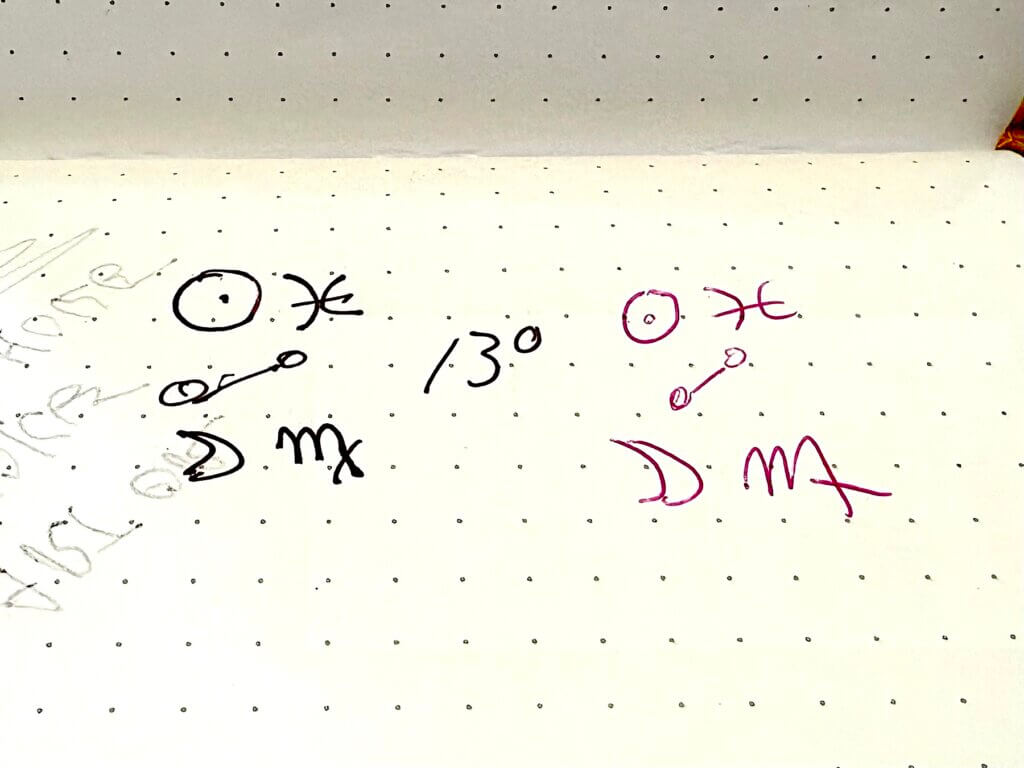 ☉ ♓ ☉ ♓
☍ 13° ☍
☽ ♍ ☽ ♍